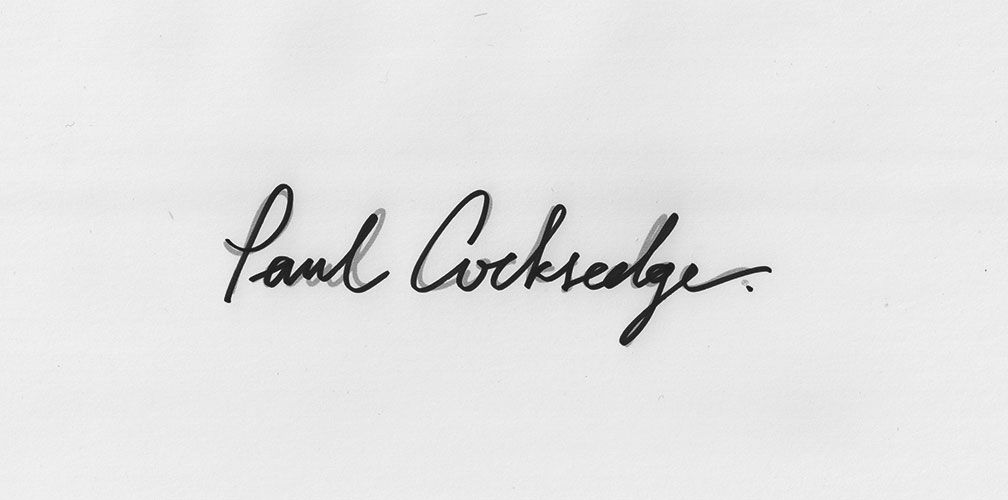 Paul Cocksedge.